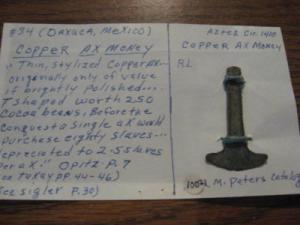 #34 (OAXACA, MEXICO)
COPPER AX MONEY
"Thin, stylized Copper Ax...
originally only of value
if brightly polished...
T shaped worth 250
Cocoa beans. Before the
Conquest a single ax would
purchase eighty slaves...
depreciated to 2.5 slaves
per ax." Opitz P. 7
(see Taxay pp 44-46)
(see Sigler P. 30)
AZTEC Cir. 1400
COPPER AX MONEY
M. Peters Catalog